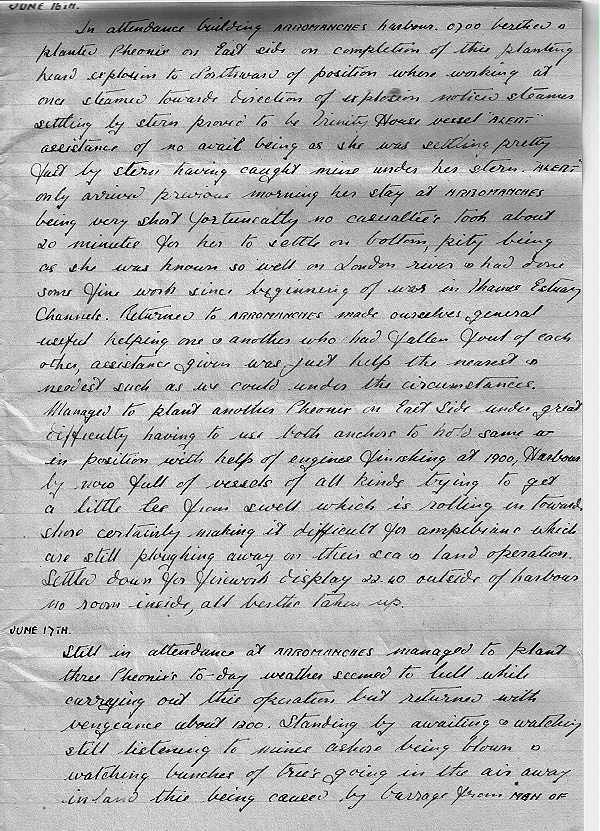 JUNE 16TH.
In attendance building ARROMANCHES harbour. 0700 berthed &
planted Pheonix on East side on completion of this planting
heard explosion to Northward of position where working at
once steamed towards direction of explosion noticed steamer
settling by stern proved to be Trinity House vessel "ALERT"
assistance of no avail being as she was settling pretty
fast by stern having caught mine under her stern. "ALERT"
only arrived previous morning her stay at ARROMANCHES
being very short fortunately no casualties took about
20 minutes for her to settle on bottom, pity being
as she was known so well on London river & had done
some fine work since beginning of war in Thames Estuary
Channels. Returned to ARROMANCHES made ourselves general
useful helping one & another who had fallen foul of each
other, assistance given was just help the nearest &
neediest such as we could under the circumstances.
Managed to plant another Pheonix on East side under great
difficulty having to use both anchors to hold same &
in position with help of engines finishing at 1900, Harbour
by now full of vessels of all kinds trying to get
a little lee from swell which is rolling in towards
shore certainly making it difficult for ampibians which
are still ploughing away on their sea & land operation.
Settled down for firework display 22.40 outside of harbour
no room inside, all berths taken up.
JUNE 17TH.
Still in attendance at ARROMANCHES managed to plant
three Pheonix's to-day weather seemed to lull while
carrying out this operation but returned with
vengeance about 1200. Standing by awaiting & watching
still listening to mines ashore being blown &
watching bunches of tree's going in the air away
inland this being caused by barrage from MAN OF